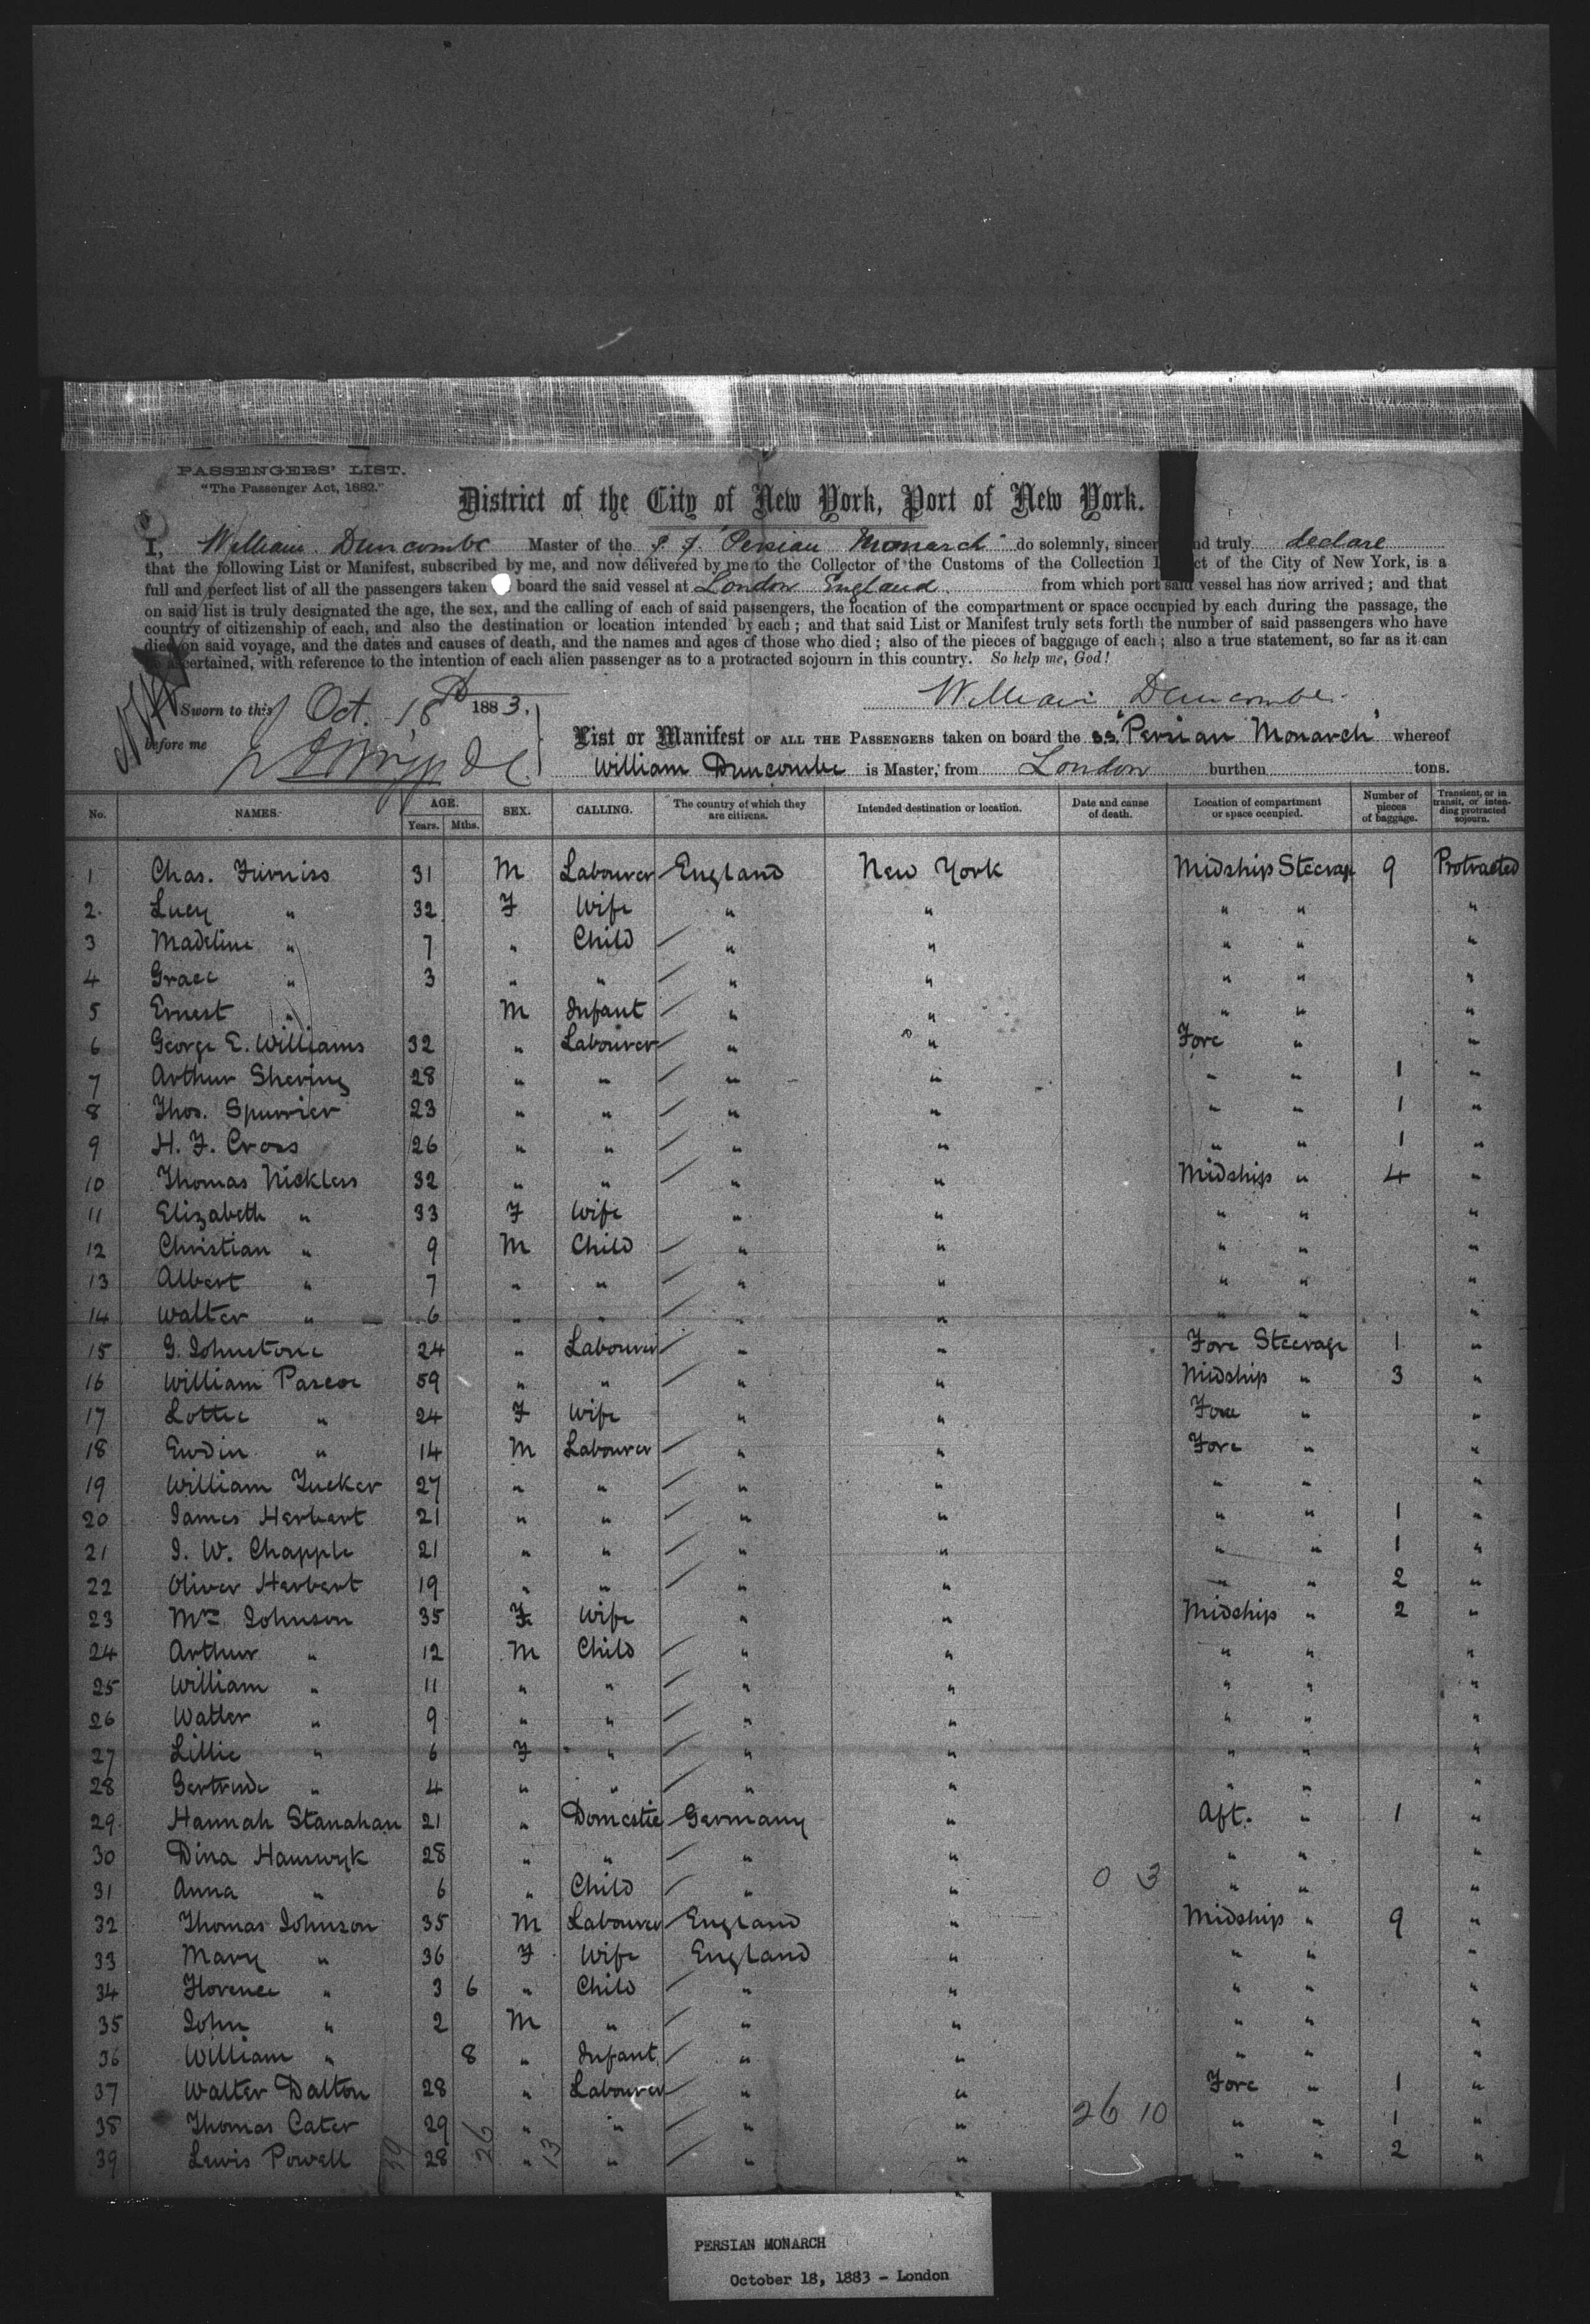 PASSENGERS' LIST.
"The Passenger Act, 1882."
District of the City of New York, Port of New York.
I, William Duncombe Master of the S. S. "Persian Monarch" do solemnly, sincer nd truly declare
that the following List or Manifest, subscribed by me, and now delivered by me to the Collector of the Customs of the Collection ct of the City of New York, is a
full and perfect list of all the passengers taken board the said vessel at London England from which port said vessel has now arrived; and that
on said list is truly designated the age, the sex, and the calling of each of said passengers, the location of the compartment or space occupied by each during the passage, the
country of citizenship of each, and also the destination or location intended by each; and that said List or Manifest truly sets forth the number of said passengers who have
died on said voyage, and the dates and causes of death, and the names and ages of those who died; also of the pieces of baggage of each; also a true statement, so far as it can
be ascertained, with reference to the intention of each alien passenger as to a protracted sojourn in this country. So help me, God!
William Duncombe.
Sworn to this Oct. 18th 1883,
before me
List or Manifest OF ALL THE PASSENGERS taken on board the s.s. "Persian Monarch" whereof
William Duncombe is Master, from London burthen tons.
No. NAMES. AGE. Years. Mths. SEX. CALLING. The country of which they are citizens. Intended destination or location. Date and cause of death. Location of compartment or space occupied. Number of pieces of baggage. Transient, or in transit, or intending protracted sojourn.
1 Chas. Furniss 31 M Labourer England New York Midship Steerage 9 Protracted
2 Lucy " 32 F Wife " " " " "
3 Madeline " 7 " Child " " " " "
4 Grace " 3 " " " " " " "
5 Ernest " M Infant " " " " "
6 George E. Williams 32 " Labourer " " Fore " "
7 Arthur Shering 28 " " " " " " 1 "
8 Thos. Spurrier 23 " " " " " " 1 "
9 H. F. Cross 26 " " " " " " 1 "
10 Thomas Nickless 32 " " " " Midship " 4 "
11 Elizabeth " 33 F Wife " " " " "
12 Christian " 9 M Child " " " " "
13 Albert " 7 " " " " " " "
14 Walter " 6 " " " " " " "
15 G. Johnstone 24 " Labourer " " Fore Steerage 1 "
16 William Pascoe 59 " " " " Midship " 3 "
17 Lottie " 24 F Wife " " Fore " "
18 Ewdin " 14 M Labourer " " Fore " "
19 William Tucker 27 " " " " " " "
20 James Herbert 21 " " " " " " 1 "
21 J. W. Chapple 21 " " " " " " 1 "
22 Oliver Herbert 19 " " " " " " 2 "
23 Mrs. Johnson 35 F Wife " " Midship " 2 "
24 Arthur " 12 M Child " " " " "
25 William " 11 " " " " " " "
26 Walter " 9 " " " " " " "
27 Lillie " 6 F " " " " " "
28 Gertrude " 4 " " " " " " "
29 Hannah Stanahan 21 " Domestic Germany " Aft. " 1 "
30 Dina Hauswyk 28 " " " " " " "
31 Anna " 6 " Child " " 0 3 " " "
32 Thomas Johnson 35 M Labourer England " Midship " 9 "
33 Mary " 36 F Wife England " " " "
34 Florence " 3 6 " Child " " " " "
35 John " 2 M " " " " " "
36 William " 8 " Infant " " " " "
37 Walter Dalton 28 " Labourer " " Fore " 1 "
38 Thomas Cater 29 " " " " 26 10 " " 1 "
39 Lewis Powell 28 " " " " " " 2 "
39 26 13
PERSIAN MONARCH
October 18, 1883 - London